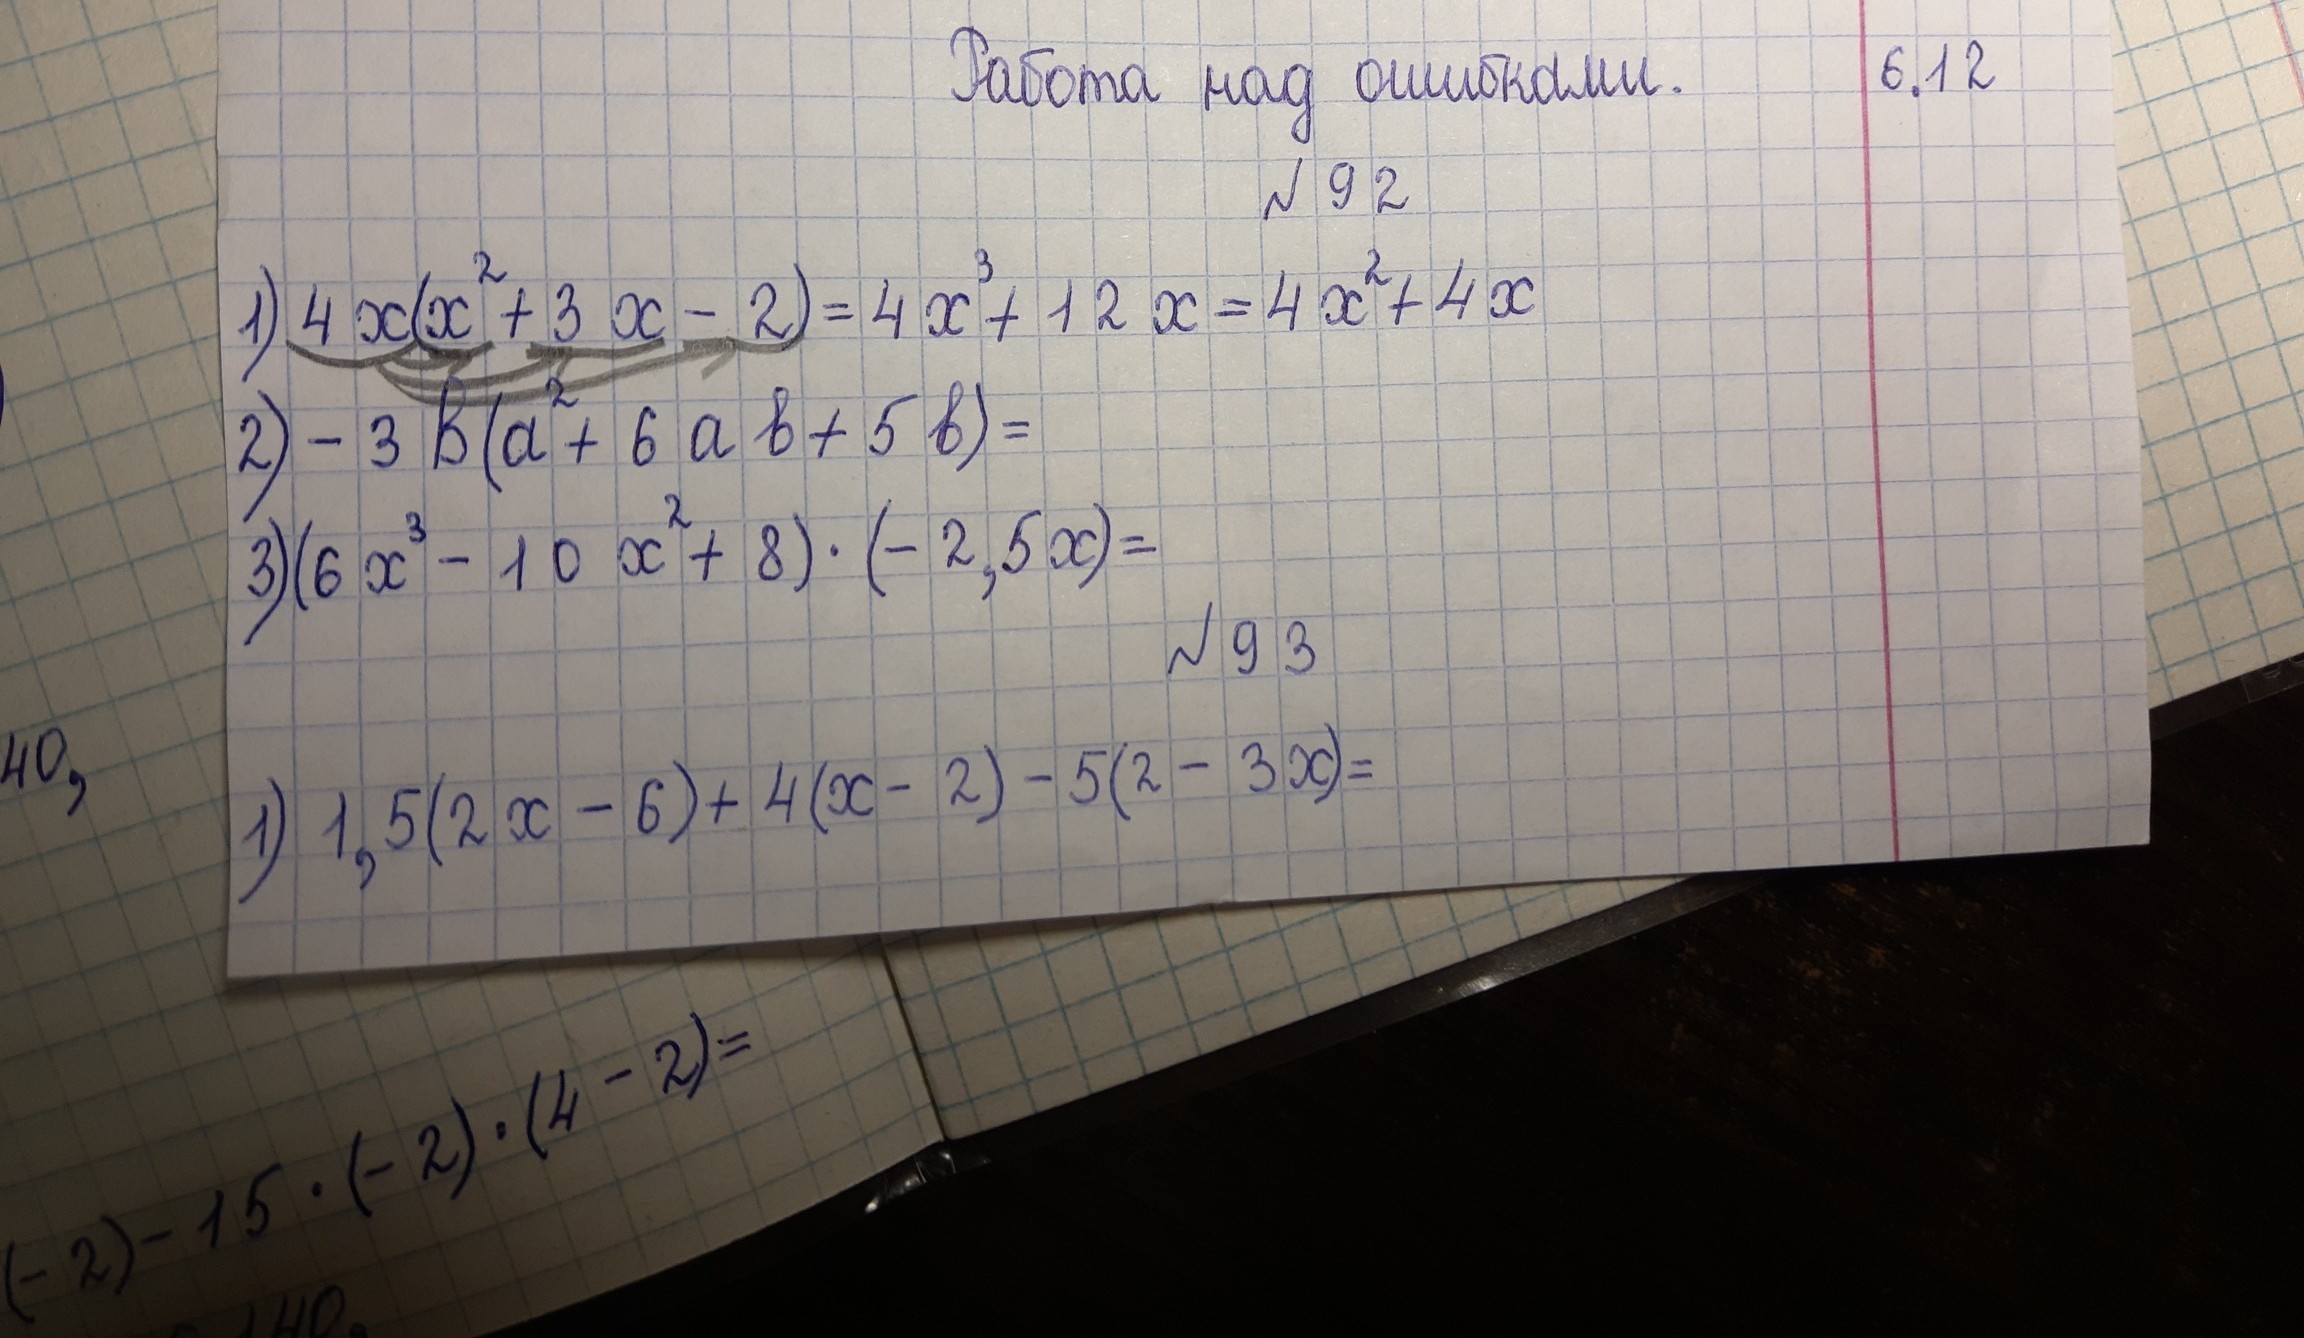 Работа над ошибками. 6.12
№92
1) 4x(x²+3x-2)=4x³+12x=4x²+4x
2) -3b(a²+6ab+5b)=
3) (6x³-10x²+8)·(-2,5x)=
№93
1) 1,5(2x-6)+4(x-2)-5(2-3x)=
40,
(-2)-15·(-2)·(4-2)=
140.